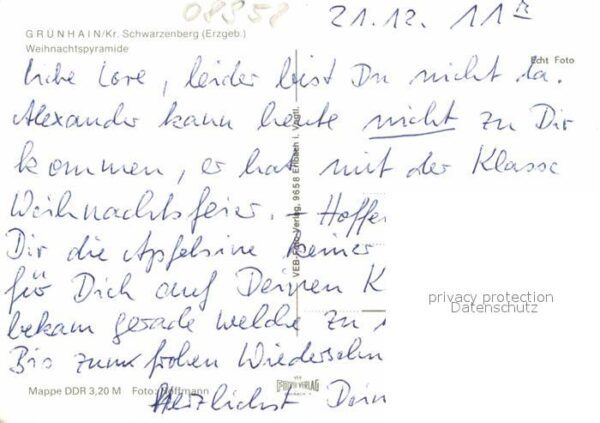 08958
21.12. 11
GRÜNHAIN/Kr. Schwarzenberg (Erzgeb.)
Weihnachtspyramide
Echt Foto
Liebe Lore, leider bist Du nicht da.
Alexander kann heute nicht zu Dir
kommen, er hat mit der Klasse
Weihnachtsfeier. – Hoffe
Dir die Apfelsine keiner
für Dich auf Deinen K
bekam gerade welche zu
Bis zum frohen Wiedersehn
Herzlichst Dein
VEB-Foto-Verlag, 9658 Erlbach i. Vogtl.
privacy protection
Datenschutz
Mappe DDR 3,20 M Foto: Hoffmann
FOTO-VERLAG